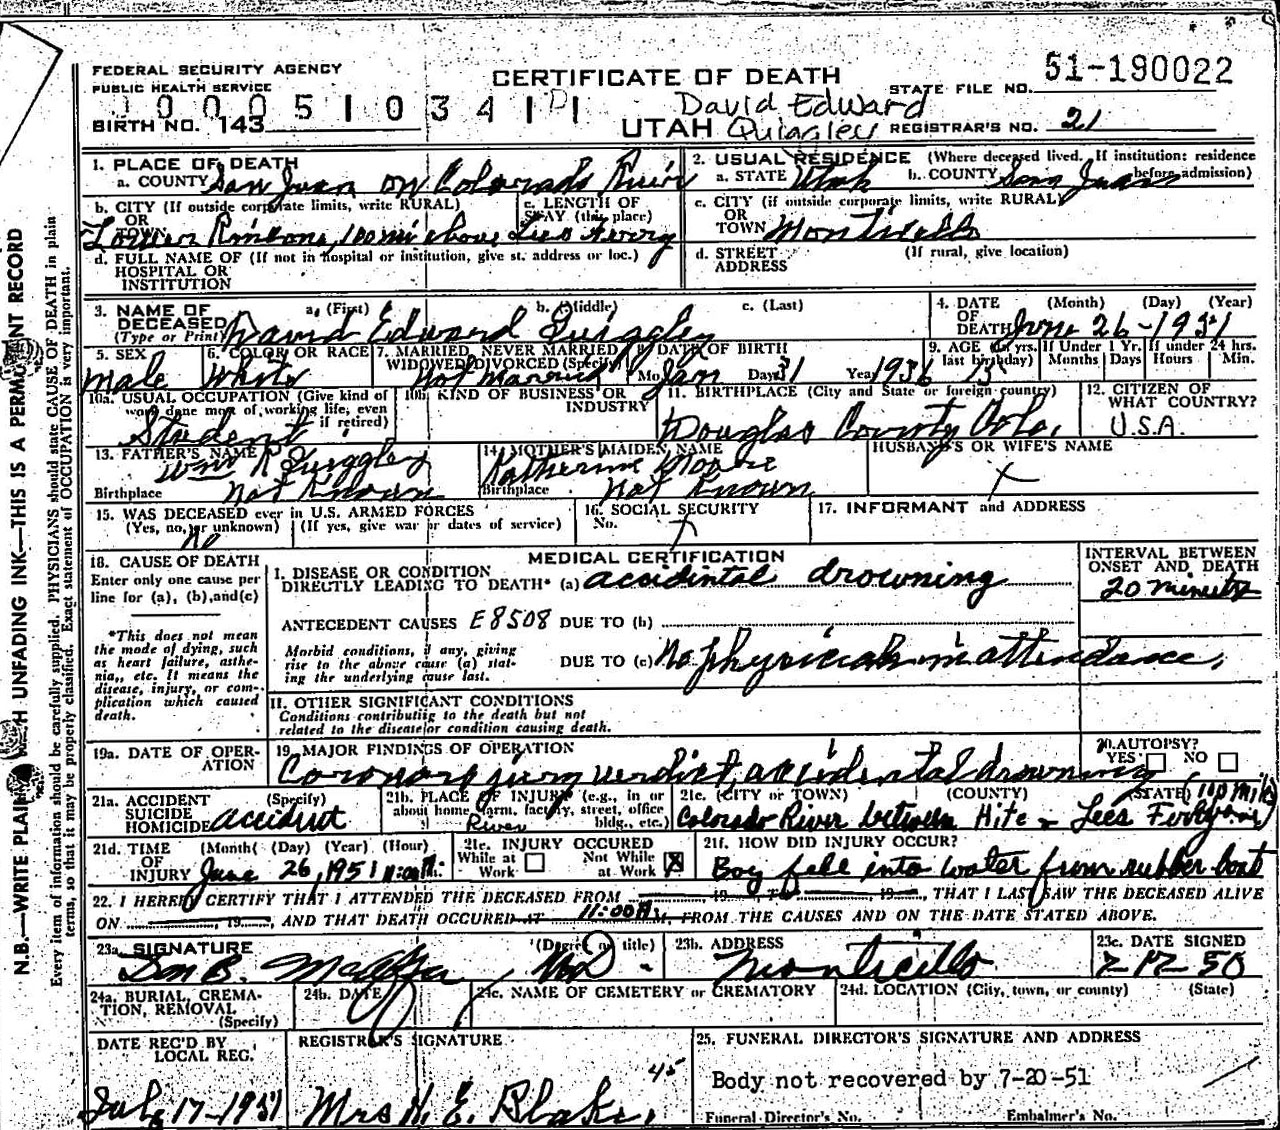 FEDERAL SECURITY AGENCY
PUBLIC HEALTH SERVICE
CERTIFICATE OF DEATH
STATE FILE NO. 51-190022
1 0 0 0 5 1 0 3 4 1 D 1
David Edward
BIRTH NO. 143
UTAH Quiggley REGISTRAR'S NO. 21
1. PLACE OF DEATH
a. COUNTY San Juan on Colorado River
2. USUAL RESIDENCE (Where deceased lived. If institution: residence before admission)
a. STATE Utah b. COUNTY San Juan
b. CITY (If outside corporate limits, write RURAL) OR TOWN
c. LENGTH OF STAY (this place)
c. CITY (if outside corporate limits, write RURAL) OR TOWN Monticello
100 mi above Lees Ferry
d. FULL NAME OF (If not in hospital or institution, give st. address or loc.) HOSPITAL OR INSTITUTION
d. STREET ADDRESS (If rural, give location)
3. NAME OF DECEASED (Type or Print) a. (First) b. (Middle) c. (Last)
David Edward Quiggley
4. DATE OF DEATH (Month) (Day) (Year)
June 26-1951
5. SEX
male
6. COLOR OR RACE
White
7. MARRIED, NEVER MARRIED WIDOWED DIVORCED (Specify)
Not Married
8. DATE OF BIRTH
Mo. Jan Day 31 Year 1936
9. AGE (In yrs. last birthday) If Under 1 Yr. Months Days If under 24 hrs. Hours Min.
15
10a. USUAL OCCUPATION (Give kind of work done most of working life, even if retired)
Student
10b. KIND OF BUSINESS OR INDUSTRY
11. BIRTHPLACE (City and State or foreign country)
Douglas County Colo.
12. CITIZEN OF WHAT COUNTRY?
U.S.A.
13. FATHER'S NAME
Wm R Quiggley
Birthplace Not Known
14. MOTHER'S MAIDEN NAME
Katherine Moore
Birthplace Not Known
HUSBAND'S OR WIFE'S NAME
X
15. WAS DECEASED ever in U.S. ARMED FORCES
(Yes, no, or unknown) (If yes, give war or dates of service)
No
16. SOCIAL SECURITY No.
X
17. INFORMANT and ADDRESS
18. CAUSE OF DEATH
Enter only one cause per line for (a), (b), and (c)
*This does not mean the mode of dying, such as heart failure, asthenia, etc. It means the disease, injury, or complication which caused death.
MEDICAL CERTIFICATION
INTERVAL BETWEEN ONSET AND DEATH
I. DISEASE OR CONDITION DIRECTLY LEADING TO DEATH* (a) accidintal drowning 20 minutes
ANTECEDENT CAUSES E8508 DUE TO (b)
Morbid conditions, if any, giving rise to the above cause (a) stating the underlying cause last.
DUE TO (c) No physician in attendance,
II. OTHER SIGNIFICANT CONDITIONS
Conditions contributing to the death but not related to the disease or condition causing death.
19a. DATE OF OPERATION
19. MAJOR FINDINGS OF OPERATION
Coronors jury verdict, accidental drowning
20. AUTOPSY?
YES NO
21a. ACCIDENT SUICIDE HOMICIDE (Specify)
accident
21b. PLACE OF INJURY (e.g., in or about home, farm, factory, street, office bldg., etc.)
River
21c. (CITY or TOWN) (COUNTY) (STATE)
Colorado River between Hite - Lees Ferry
21d. TIME OF INJURY (Month) (Day) (Year) (Hour)
June 26, 1951 11:00 A m.
21e. INJURY OCCURED
While at Work Not While at Work X
21f. HOW DID INJURY OCCUR?
Boy fell into water from rubber boat
22. I HEREBY CERTIFY THAT I ATTENDED THE DECEASED FROM 19 TO 19 , THAT I LAST SAW THE DECEASED ALIVE
ON 19 , AND THAT DEATH OCCURED AT 11:00 A M, FROM THE CAUSES AND ON THE DATE STATED ABOVE.
23a. SIGNATURE (Degree or title)
Don B. MD.
23b. ADDRESS
Monticello
23c. DATE SIGNED
7-17-50
24a. BURIAL, CREMATION, REMOVAL (Specify)
24b. DATE
24c. NAME OF CEMETERY or CREMATORY
24d. LOCATION (City, town, or county) (State)
DATE REC'D BY LOCAL REG.
July 17-1951
REGISTRAR'S SIGNATURE
Mrs H. E. Blake.
45
25. FUNERAL DIRECTOR'S SIGNATURE AND ADDRESS
Body not recovered by 7-20-51
Funeral Director's No. Embalmer's No.
N.B.—WRITE PLAINLY WITH UNFADING INK—THIS IS A PERMANENT RECORD
Every item of information should be carefully supplied. PHYSICIANS should state CAUSE OF DEATH in plain
terms, so that it may be properly classified. Exact statement of OCCUPATION is very important.